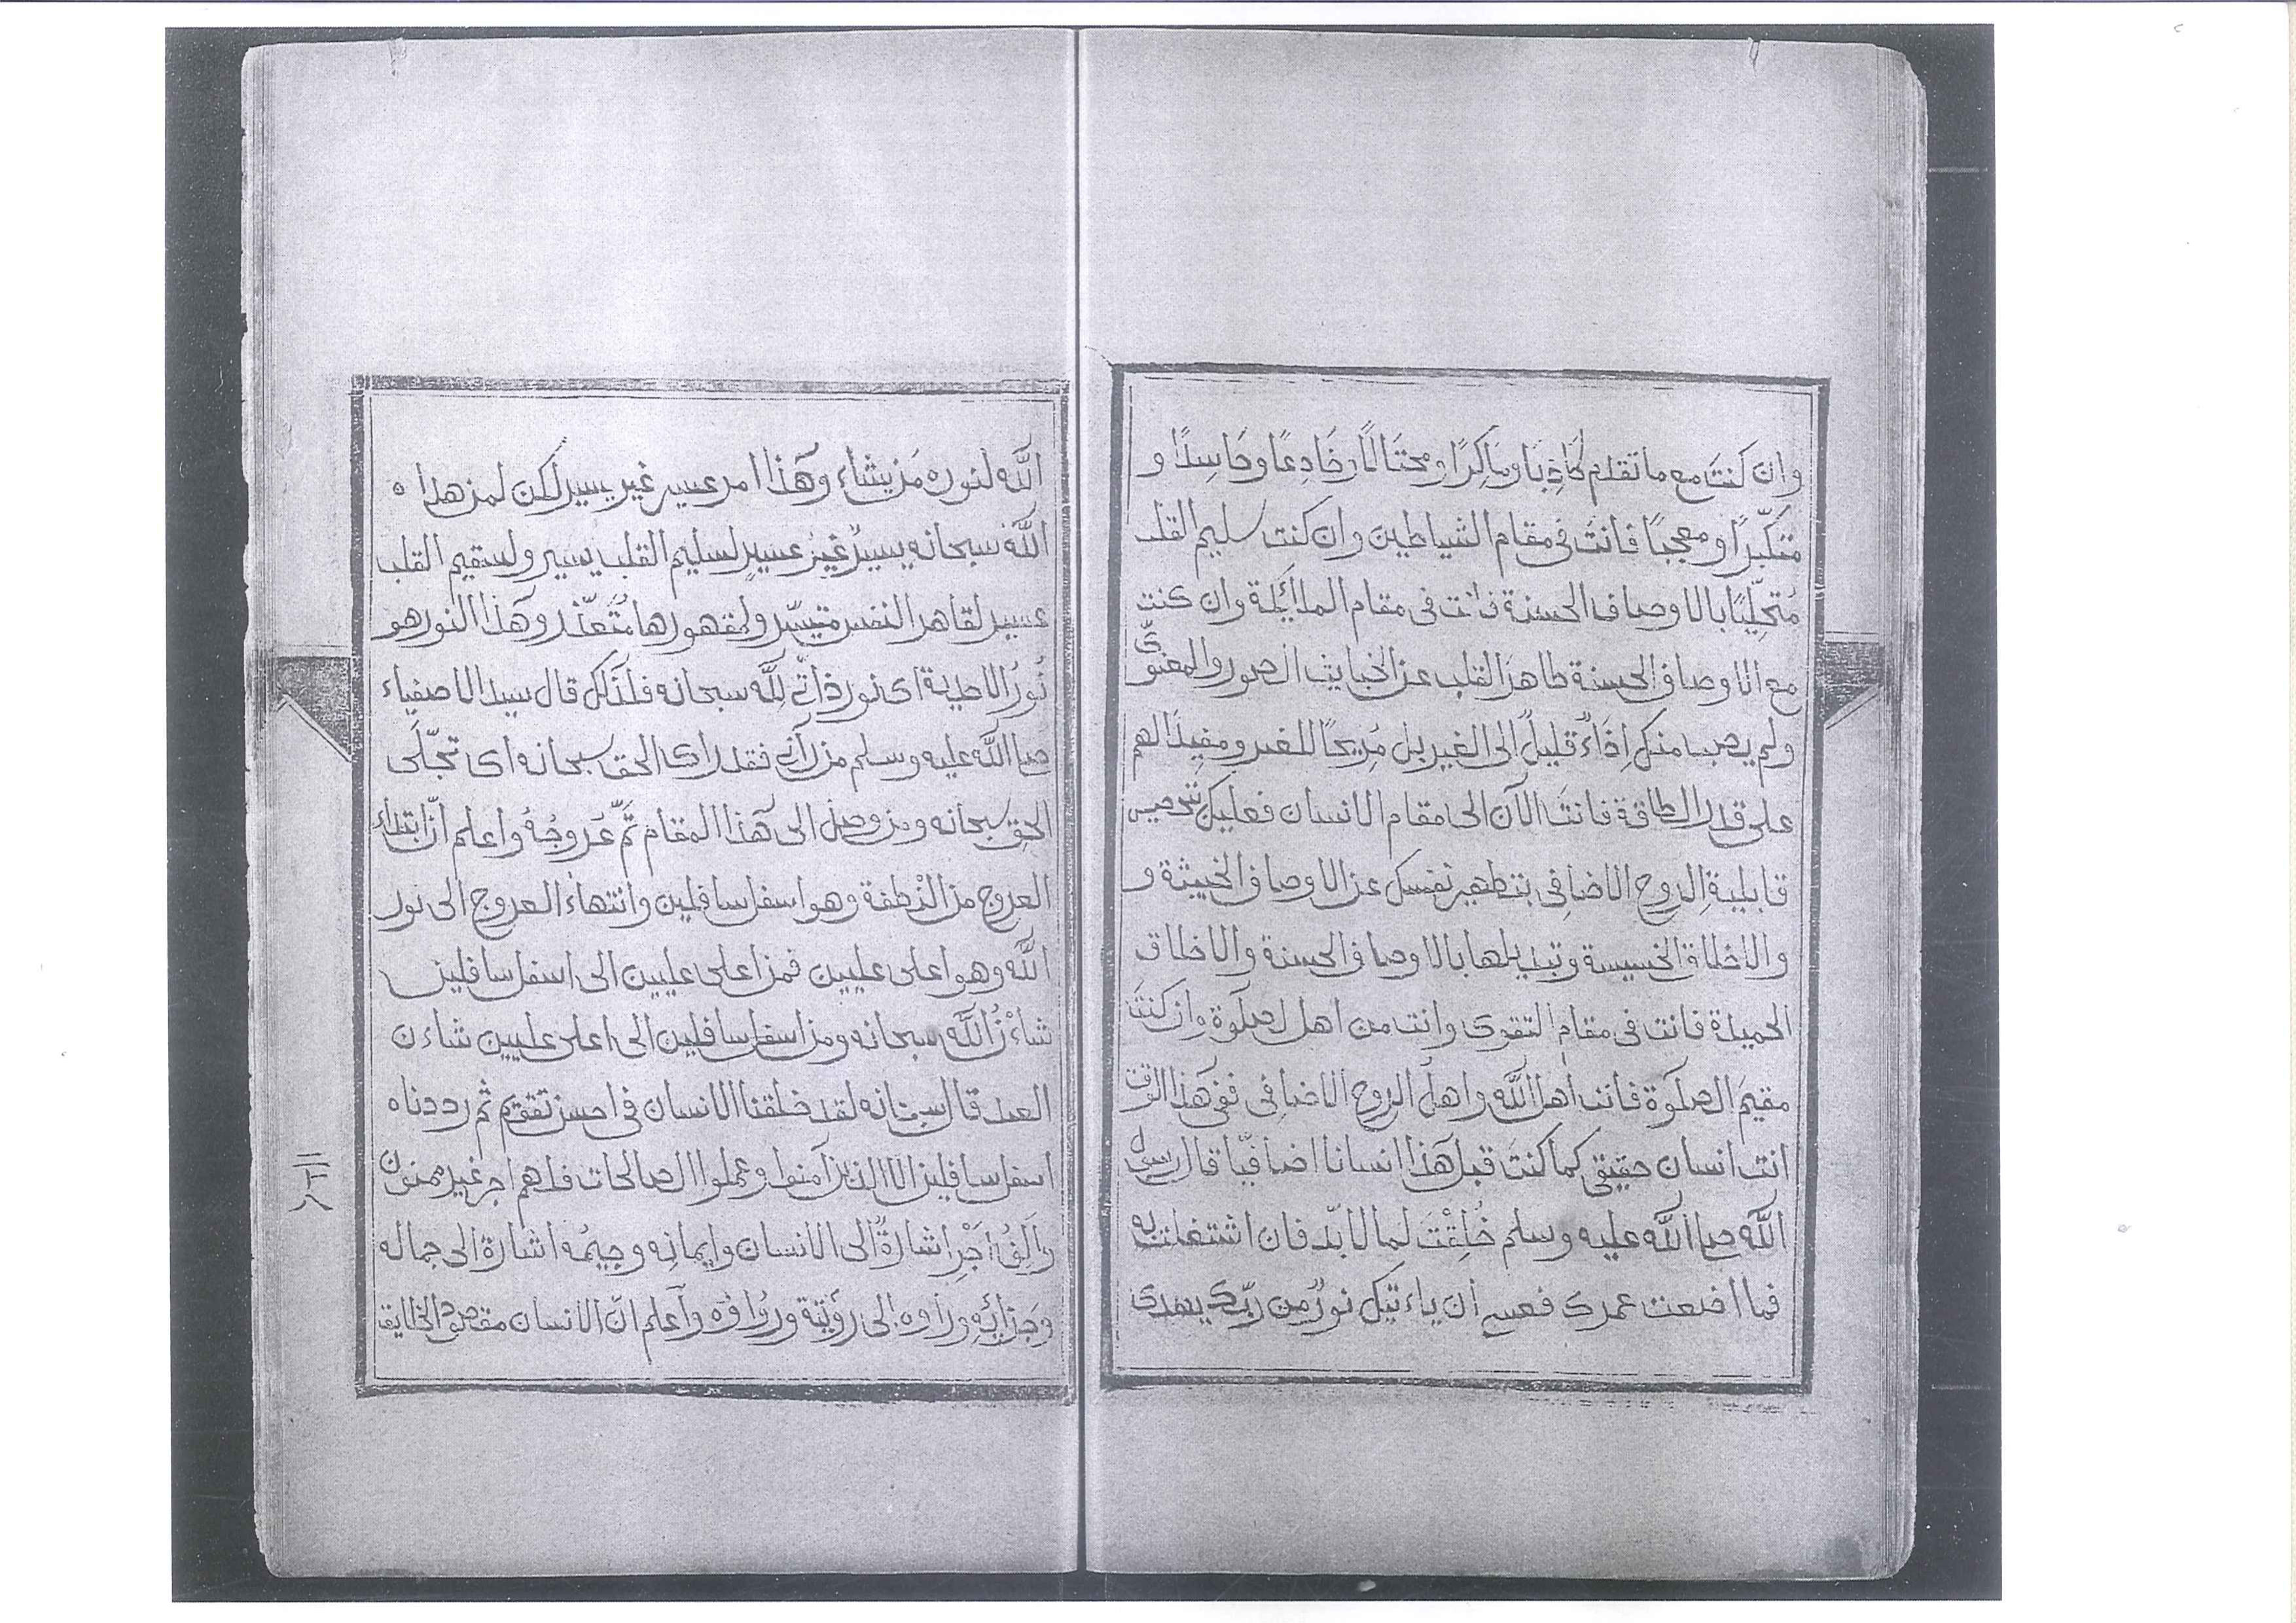 وان كنتَ مع ما تقدم كَاذِبَا ومَاكِرًا ومحتَالًا وخَادِعًا وحَاسِدًا و
مَتكبّرًا ومعجبًا فانتَ فى مقام الشياطين وان كنت سليم القلب
مُتحلِّيًا بالاوصاف الحسنة فانت فى مقام الملائكة وان كنت
مع الاوصاف الحسنة طاهرَ القلب عن الخبايث الصورى والمعنوىّ
ولم يصب منك اِذَاءٌ قليلٌ الى الغير بل مُريحًا للغير ومفيدًا لهم
على قدر الطاقة فانتَ الآن الى مقام الانسان فعليك بتحصيل
قابلية الروح الاضافى بتطهير نفسك عن الاوصاف الخبيثة و
والاخلاق الخسيسة وتبديلها بالاوصاف الحسنة والاخلاق
الحميدة فانت فى مقام التقوى وانت من اهل الصلٰوة وان كنتَ
مقيمَ الصلٰوة فانت اهل اللّٰه واهلُ الروح الاضافى ففى هٰذا الوقت
انت انسان حقيقى كما كنتَ قبل هٰذا انسانا اضافيّا قال رسول
اللّٰه صلى اللّٰه عليه وسلم خُلِقْتَ لما لا بدّ فان اشتغلت به
فما اضعت عمرك فعسى أن ياءتيك نورٌ من ربّك يهدى
اللّٰه لنوره مَن يشاء وهٰذا امر عسير غير يسير لكن لمن هداه
اللّٰه سبحانه يسيرٌ غيرُ عسيرٍ لسليم القلب يسير ولسقيم القلب
عسير لقاهر النفس متيسّر ولمقهورها متُعذّر وهٰذا النور هو
نُورُ الاحدية اى نور ذاتىّ للّٰه سبحانه فلذٰلك قال سيد الاصفياء
صلى اللّٰه عليه وسلم من رآنى فقد راى الحق سبحانه اى تجّلى
الحق سبحانه ومن وصل الى هٰذا المقام تمّ عُروجُهُ واعلم انّ ابتداء
العروج من النُطفة وهو اسفل سافلين وانتهاء العروج الى نور
اللّٰه وهو اعلى عليين فمن اعلى عليين الى اسفل سافلين
شاءْنُ اللّٰه سبحانه ومن اسفل سافلين الى اعلى عليين شاءن
العبد قال سبحانه لقد خلقنا الانسان فى احسن تقويم ثم رددناه
اسفل سافلين الا الذين آمنوا وعملوا الصالحات فلهم اجر غير ممنون
واَلِفُ اَجْرٍ اشارةٌ الى الانسان وايمانه وجيمُه اشارة الى جماله
وجزائِهِ وراوه الى رؤيتِه ورُواؤه وآعلم انّ الانسان مقصود الخلايق